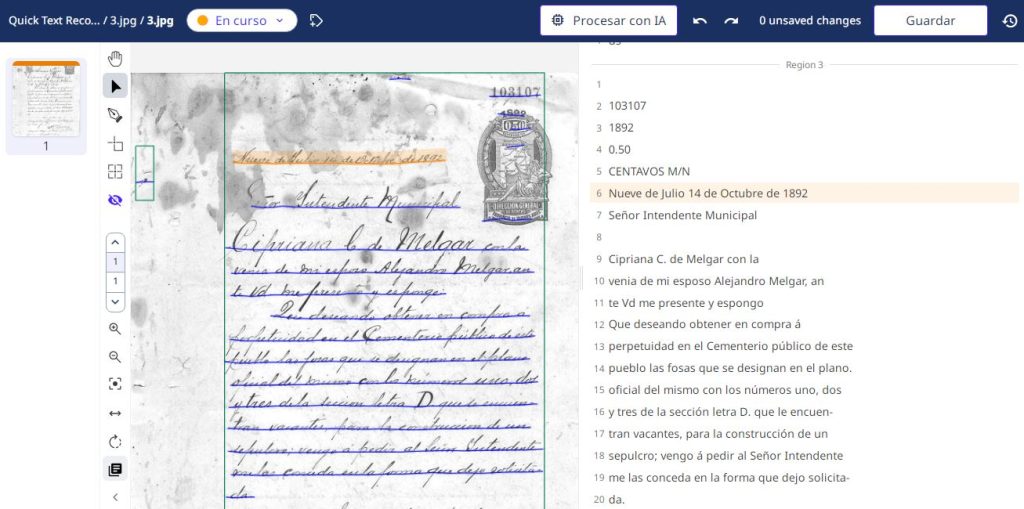 Quick Text Reco... / 3.jpg / 3.jpg
En curso
Procesar con IA
0 unsaved changes
Guardar
1
1
1
103107
1892
0.50
DIRECCION GENERAL
Nueve de Julio 14 de Octubre de 1892
Señor Intendente Municipal
Cipriana C. de Melgar con la
venia de mi esposo Alejandro Melgar, an
te Vd me presento y espongo:
Que deseando obtener en compra a
perpetuidad en el Cementerio público de este
pueblo las fosas que se designan en el plano
oficial del mismo con los números uno, dos
y tres de la sección letra D que se encuen-
tran vacantes, para la construcción de un
sepulcro; vengo a pedir al Señor Intendente
me las conceda en la forma que dejo solicita-
da.
Region 3
1
2 103107
3 1892
4 0.50
5 CENTAVOS M/N
6 Nueve de Julio 14 de Octubre de 1892
7 Señor Intendente Municipal
8
9 Cipriana C. de Melgar con la
10 venia de mi esposo Alejandro Melgar, an
11 te Vd me presente y espongo
12 Que deseando obtener en compra á
13 perpetuidad en el Cementerio público de este
14 pueblo las fosas que se designan en el plano.
15 oficial del mismo con los números uno, dos
16 y tres de la sección letra D. que le encuen-
17 tran vacantes, para la construcción de un
18 sepulcro; vengo á pedir al Señor Intendente
19 me las conceda en la forma que dejo solicita-
20 da.